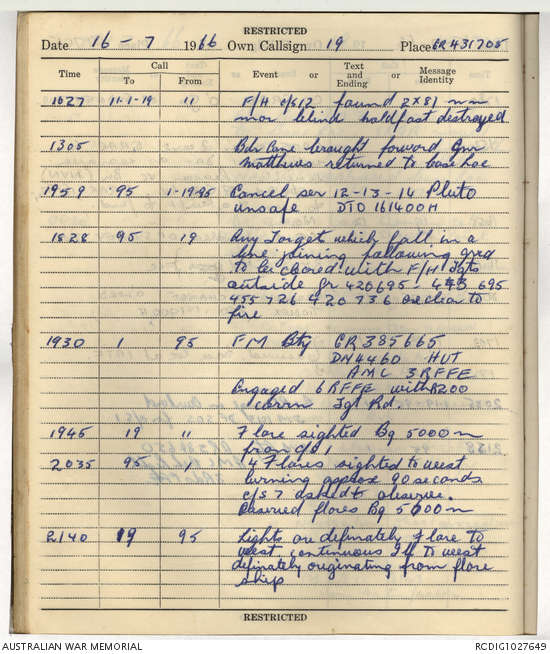 RESTRICTED
Date 16-7 1966 Own Callsign 19 Place GR 431705
Time Call Event or Text and Ending or Message Identity
To From
1027 11-1-19 11 F/H c/s 12 found 2 x 81 mm
mor blinds holdfast destroyed
1305 Bdr Cane brought forward Gnr
Matthews returned to base loc
1959 95 1-19-95 Cancel ser 12-13-14 Pluto
unsafe DTO 161400H
1828 95 19 Any Target which fall in a
line joining following grid
to be cleared with F/H Tgts
outside gr 420695 - 695
455726 420736 are clear to
fire
1930 1 95 FM Bty GR 385665
DN 4460 HUT
AMC 3RFFE
Engaged 6 RFFE with R200
corrn Tgt Rd.
1945 19 11 Flare sighted Bg 5000 m
from c/s 1
2035 95 1 4 Flares sighted to west
burning approx 90 seconds
c/s 7 asked to observe.
Observed flares Bg 5000 m
2140 19 95 Lights are definately flare to
west continuous Ill to west
definately originating from flare
ship
RESTRICTED
AUSTRALIAN WAR MEMORIAL
RCDIG1027649